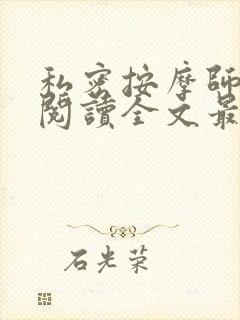 私密按摩師
閱讀全文最
石光荣